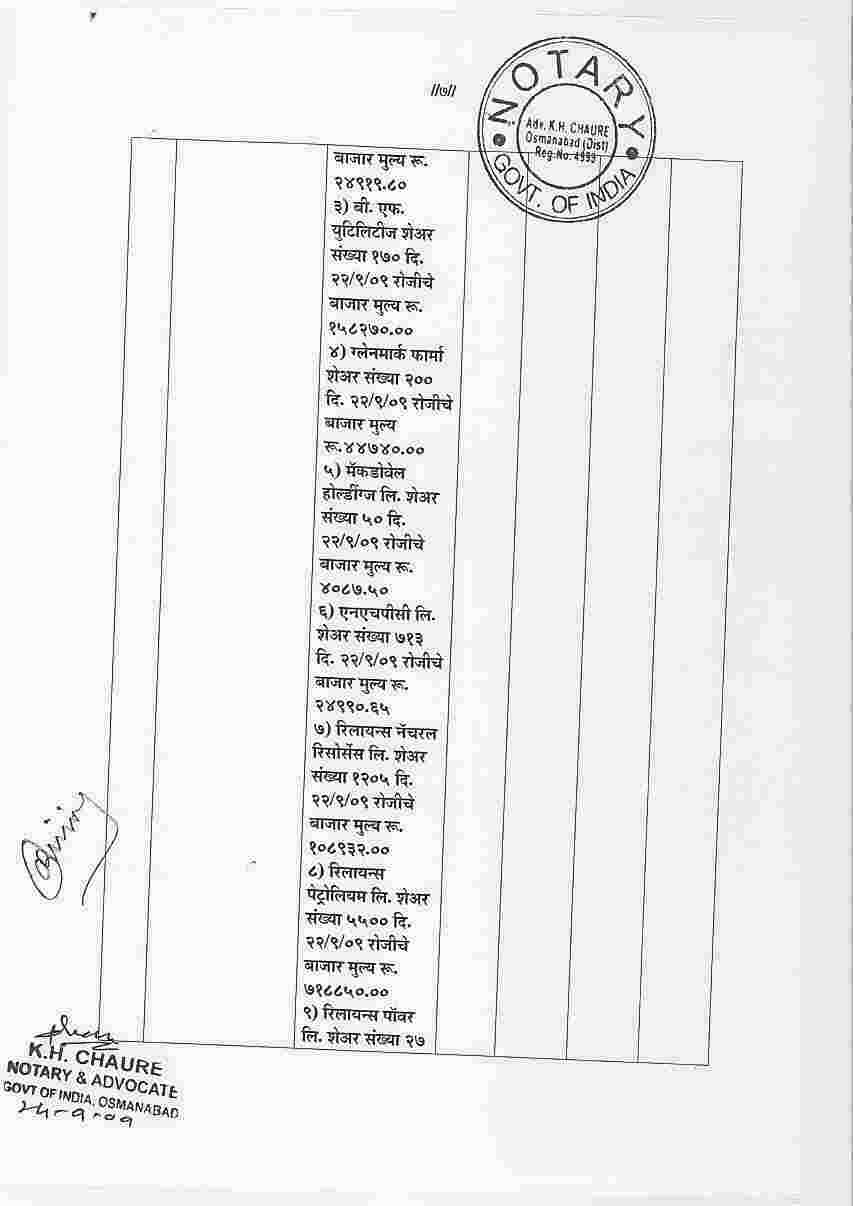 //७//
NOTARY
Adv. K.H. CHAURE
Osmanabad (Dist)
Reg.No. 4993
GOVT. OF INDIA
बाजार मुल्य रू.
२४९१९.८०
३) बी. एफ.
युटिलिटीज शेअर
संख्या १७० दि.
२२/९/०९ रोजीचे
बाजार मुल्य रू.
१५८२७०.००
४) ग्लेनमार्क फार्मा
शेअर संख्या २००
दि. २२/९/०९ रोजीचे
बाजार मुल्य
रू.४४७४०.००
५) मॅकडोवेल
होल्डींग्ज लि. शेअर
संख्या ५० दि.
२२/९/०९ रोजीचे
बाजार मुल्य रू.
४०८७.५०
६) एनएचपीसी लि.
शेअर संख्या ७१३
दि. २२/९/०९ रोजीचे
बाजार मुल्य रू.
२४९९०.६५
७) रिलायन्स नॅचरल
रिसोर्सेस लि. शेअर
संख्या १२०५ दि.
२२/९/०९ रोजीचे
बाजार मुल्य रू.
१०८९३२.००
८) रिलायन्स
पेट्रोलियम लि. शेअर
संख्या ५५०० दि.
२२/९/०९ रोजीचे
बाजार मुल्य रू.
७१८८५०.००
९) रिलायन्स पॉवर
लि. शेअर संख्या २७
K.H. CHAURE
NOTARY & ADVOCATE
GOVT OF INDIA, OSMANABAD